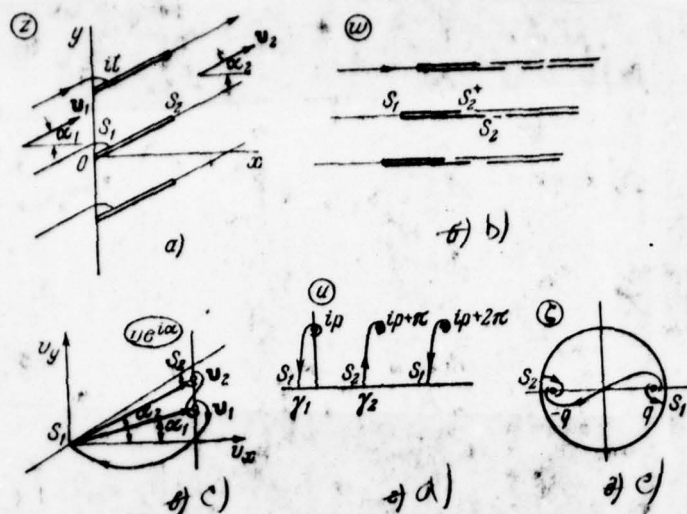 z
y
it
v₂
α₂
v₁
α₁
S₁
S₂
0
x
a)
w
S₁
S₂⁺
S₂⁻
б) b)
ve^{iα}
v_y
S₂
v₂
v₁
α₂
α₁
S₁
v_x
в) c)
u
ip
ip+π
ip+2π
S₁
S₂
S₁
γ₁
γ₂
г) d)
ζ
S₂
-q
q
S₁
д) e)